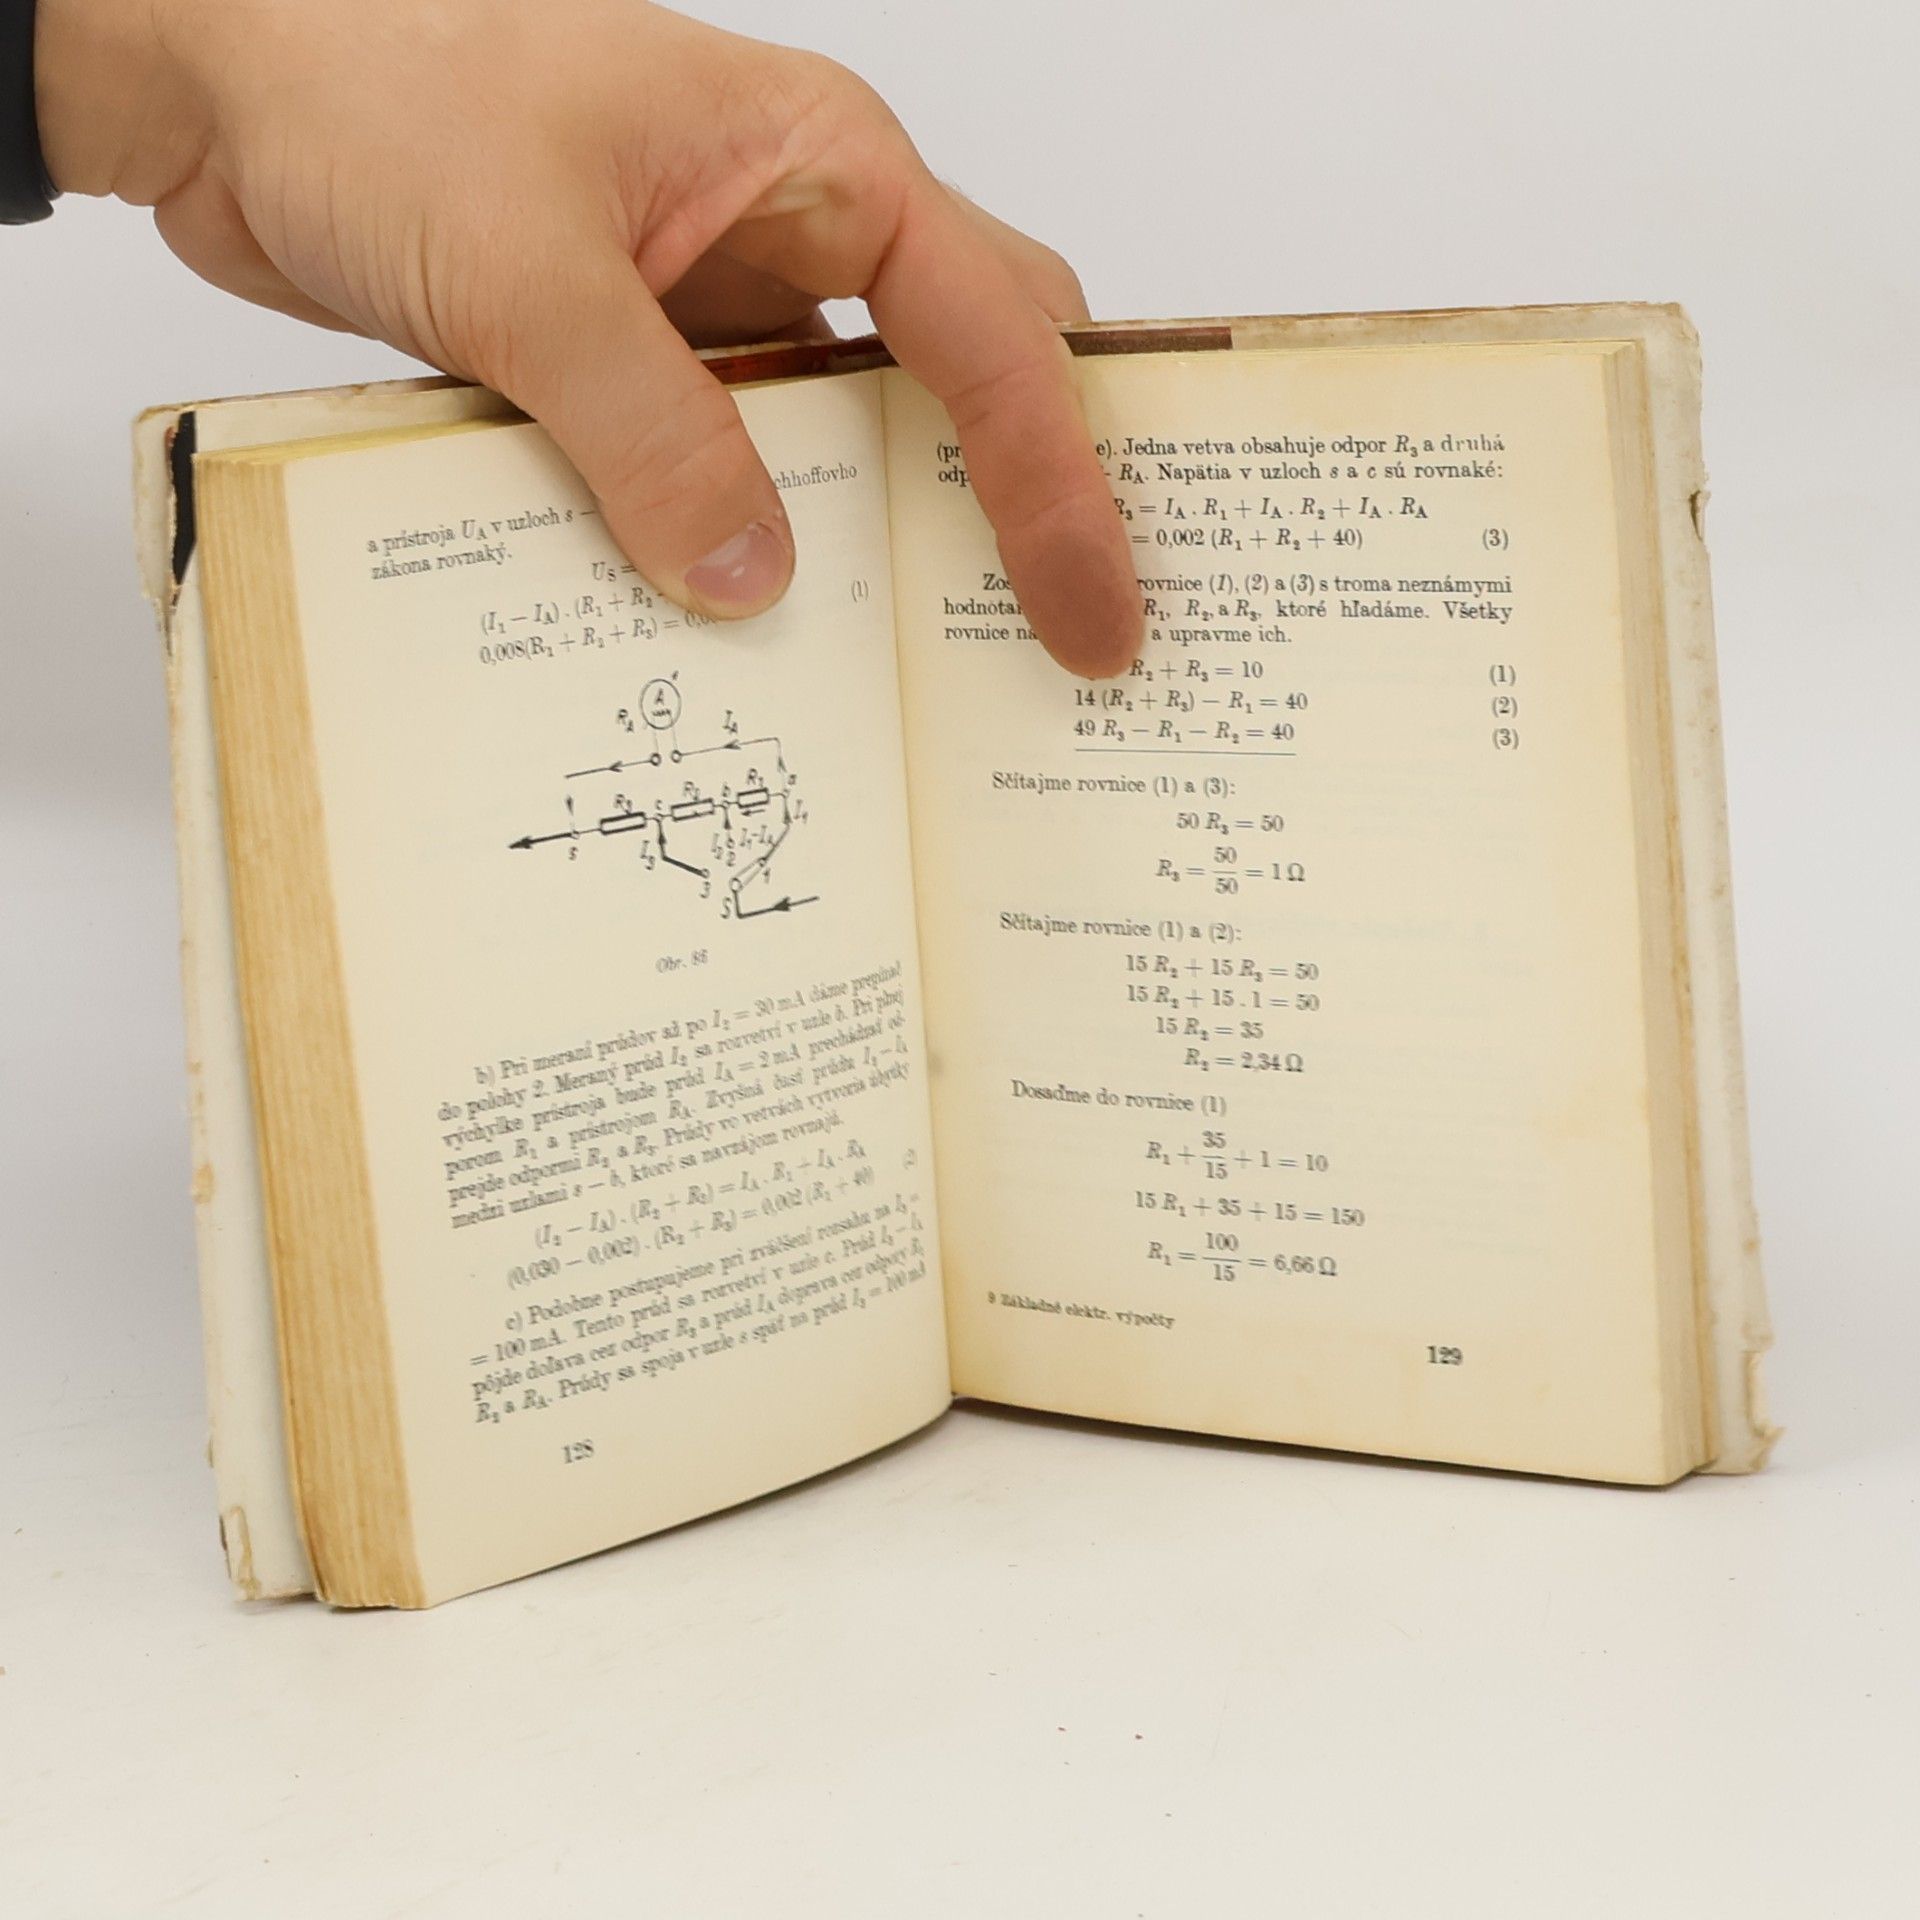 chhoffovho
a prístroja U_A v uzloch s —
zákona rovnaký.
U_S =
(I₁ — I_A) . (R₁ + R₂
(1)
0,008(R₁ + R₂ + R₃) = 0,0
A
R_A
I_A
R₃ c R₂ b R₁ a
s I₃ I₂ I₁-I_A I₁
3 2 1
S
Obr. 86
b) Pri meraní prúdov až po I₂ = 30 mA dáme prepínač
do polohy 2. Meraný prúd I₂ sa rozvetví v uzle b. Pri plnej
výchylke prístroja bude prúd I_A = 2 mA prechádzať od-
porom R₁ a prístrojom R_A. Zvyšná časť prúdu I₂ — I_A
prejde odpormi R₂ a R₃. Prúdy vo vetvách vytvoria úbytky
medzi uzlami s — b, ktoré sa navzájom rovnajú.
(I₂ — I_A) . (R₂ + R₃) = I_A . R₁ + I_A . R_A
(0,030 — 0,002) . (R₂ + R₃) = 0,002 (R₁ + 40) (2)
c) Podobne postupujeme pri zväčšení rozsahu na I₃ =
= 100 mA. Tento prúd sa rozvetví v uzle c. Prúd I₃ — I_A
pôjde doľava cez odpor R₃ a prúd I_A doprava cez odpory R₁
R₂ a R_A. Prúdy sa spoja v uzle s späť na prúd I₃ = 100 mA
128
e). Jedna vetva obsahuje odpor R₃ a druhá
R_A. Napätia v uzloch s a c sú rovnaké:
R₃ = I_A . R₁ + I_A . R₂ + I_A . R_A
= 0,002 (R₁ + R₂ + 40) (3)
rovnice (1), (2) a (3) s troma neznámymi
R₁, R₂, a R₃, ktoré hľadáme. Všetky
rovnice a upravme ich.
R₂ + R₃ = 10 (1)
14 (R₂ + R₃) — R₁ = 40 (2)
49 R₃ — R₁ — R₂ = 40 (3)
Sčítajme rovnice (1) a (3):
50 R₃ = 50
R₃ = 50/50 = 1 Ω
Sčítajme rovnice (1) a (2):
15 R₂ + 15 R₃ = 50
15 R₂ + 15 . 1 = 50
15 R₂ = 35
R₂ = 2,34 Ω
Dosaďme do rovnice (1)
R₁ + 35/15 + 1 = 10
15 R₁ + 35 + 15 = 150
R₁ = 100/15 = 6,66 Ω
9 Základné elektr. výpočty
129